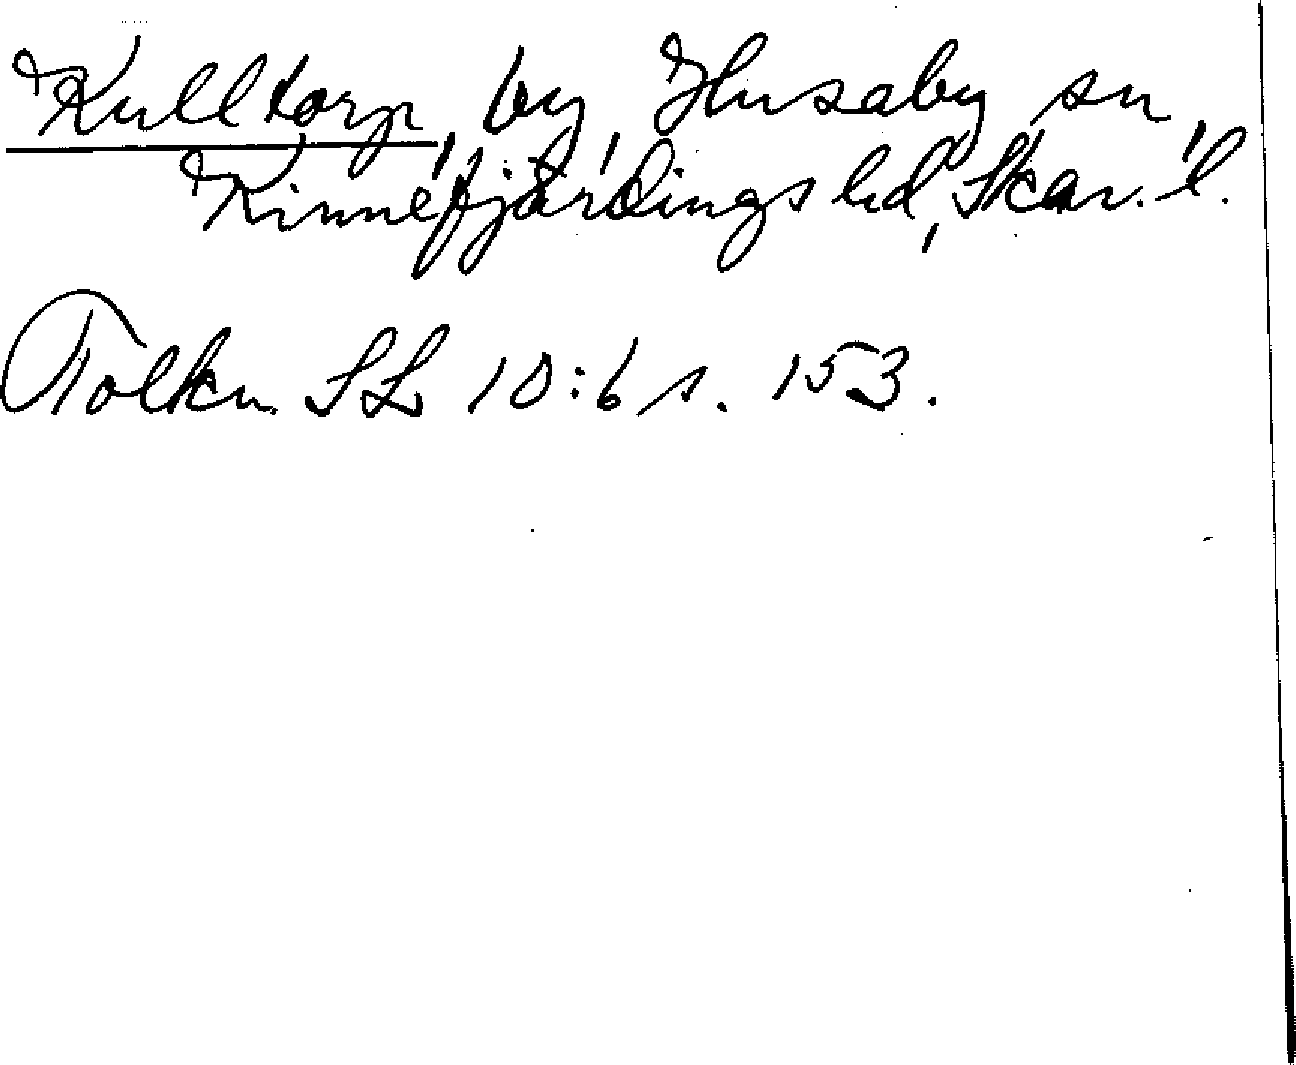 Kulltorp, by, Husaby sn,
Kinnefjärdings hd, Skar. l.
Tolkn. SL 10:6 s. 153.